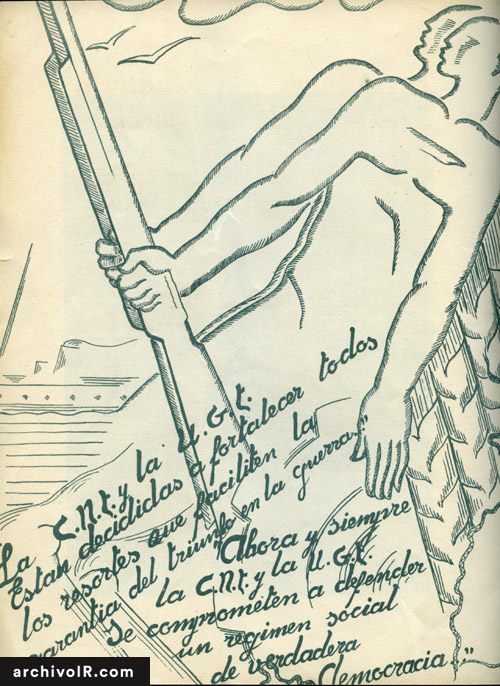 La C.N.t. y la U.G.t.
Estan decididas a fortalecer todos
los resortes que faciliten la
garantia del triunfo en la guerra..."
"Ahora y siempre
la C.N.t. y la U.G.t.
se comprometen a defender
un regimen social
de verdadera
Democracia..."
archivoIR.com